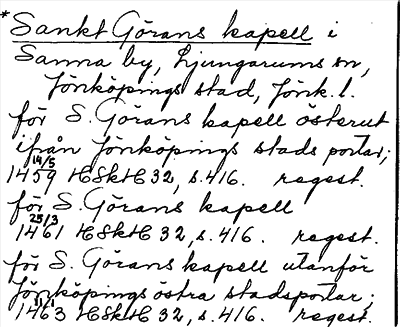 *Sankt Görans kapell i
Sanna by, Ljungarums sn,
Jönköpings stad, Jönk. l.
för S. Görans kapell österut
ifrån Jönköpings stads portar;
14/5
1459 HSkH 32, s. 416. regest.
för S. Görans kapell
25/3
1461 HSkH 32, s. 416. regest.
för S. Görans kapell utanför
Jönköpings östra stadsportar;
1463 HSkH 32, s. 416. regest.